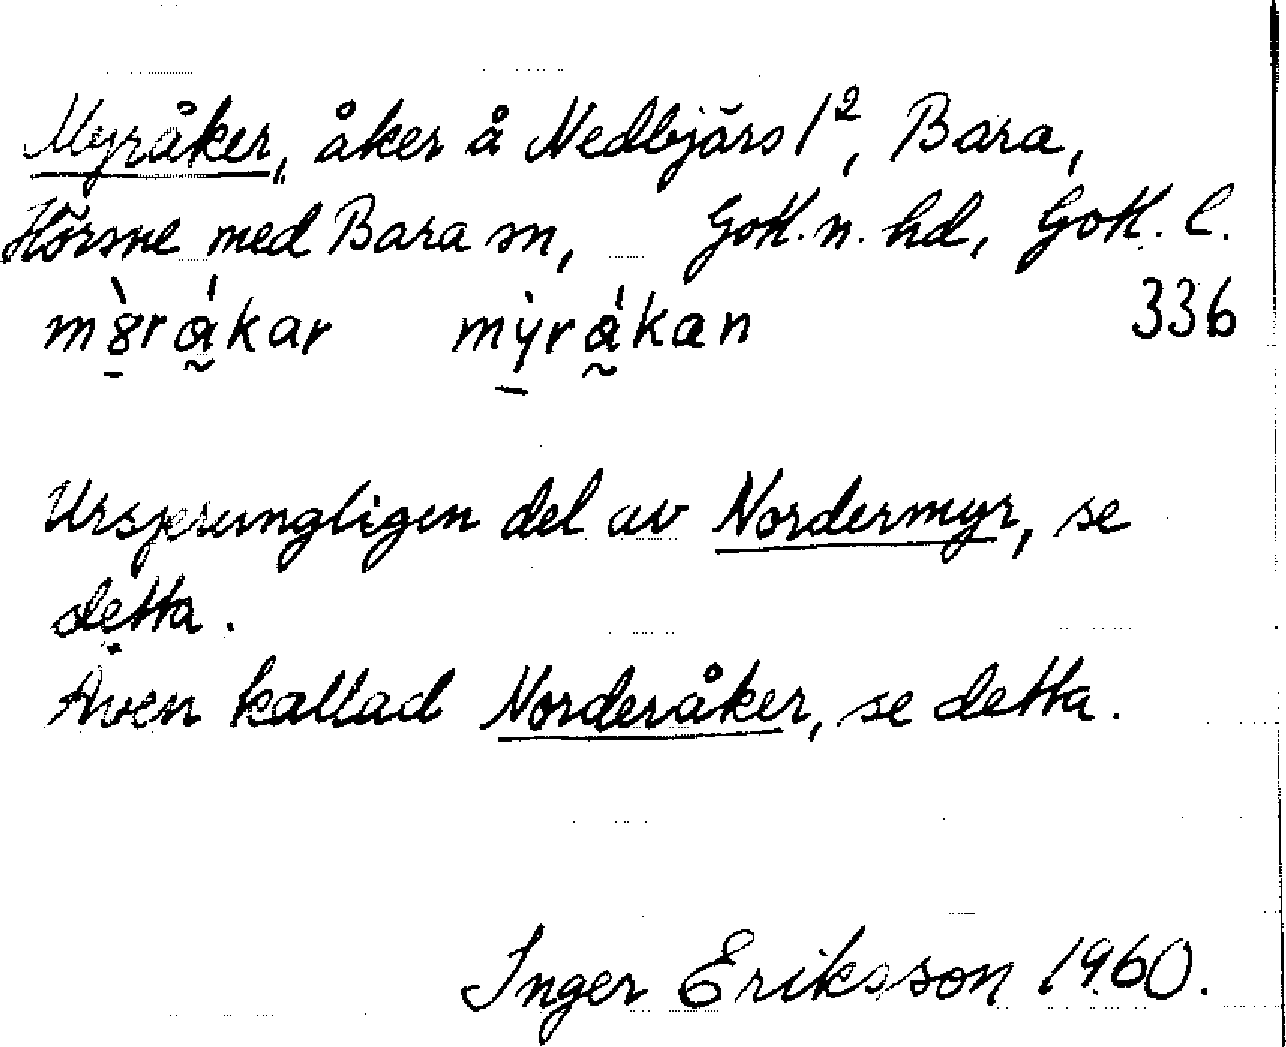 Myråker, åker å Nedbjärs 1², Bara,
Hörsne med Bara sn, Gotl. n. hd, Gotl. l.
336
Ursprungligen del av Nordermyr, se
detta.
Även kallad Norderåker, se detta.
Inger Eriksson 1960.